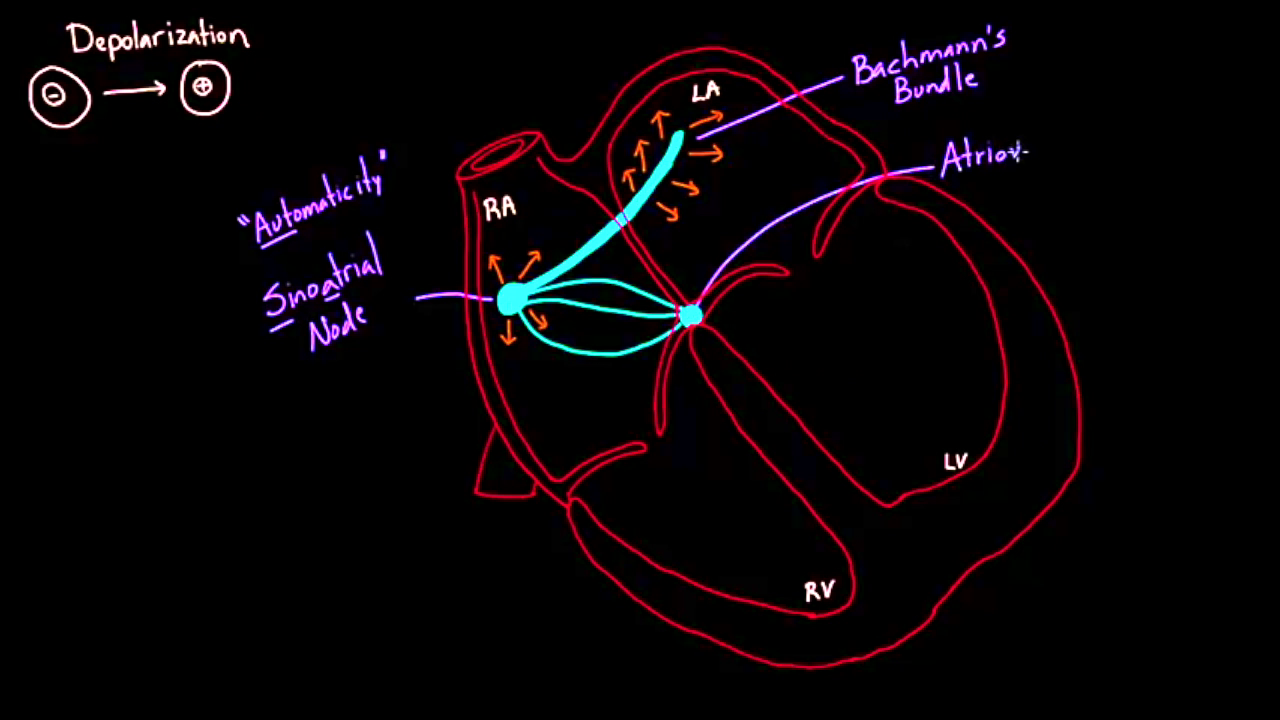 Depolarization
- → +
"Automaticity"
Sinoatrial
Node
RA
LA
Bachmann's
Bundle
Atriov
LV
RV